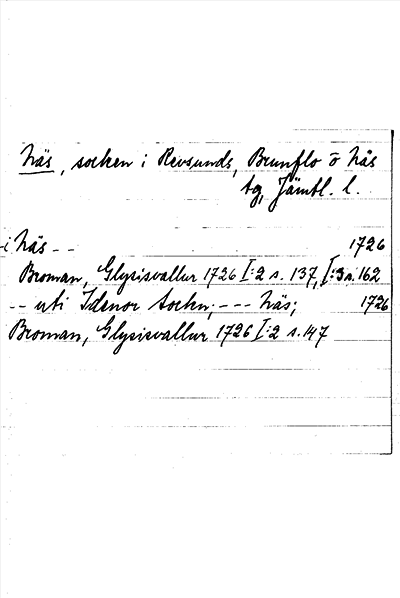 Näs, socken i Revsunds, Brunflo o Näs
tg, Jämtl. l.
-i Näs - - 1726
Broman, Glysisvallur 1726 I:2 s. 137, I:3 s. 162
-- uti Idenor Sockn; --- Näs; 1726
Broman, Glysisvallur 1726 I:2 s. 147